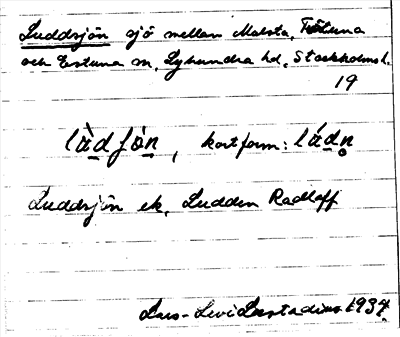 Luddsjön sjö mellan Malsta,
och Estuna sn, Lyhundra hd, Stockholms l.
19
lằdfòn, kortform: lάdn̥
Luddsjön ek, Ludden Radloff
Lars-Levi Læstadius 1937.